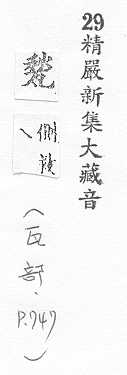 29精嚴新集大藏音
側
(瓦部.P.747)